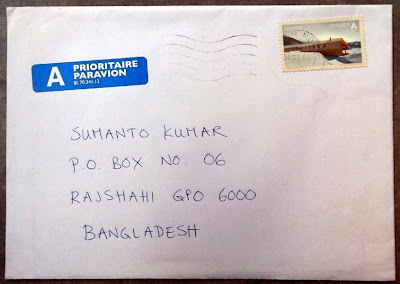 A PRIORITAIRE
PARAVION
A
SUMANTO KUMAR
P.O. BOX NO. 06
RAJSHAHI GPO 6000
BANGLADESH